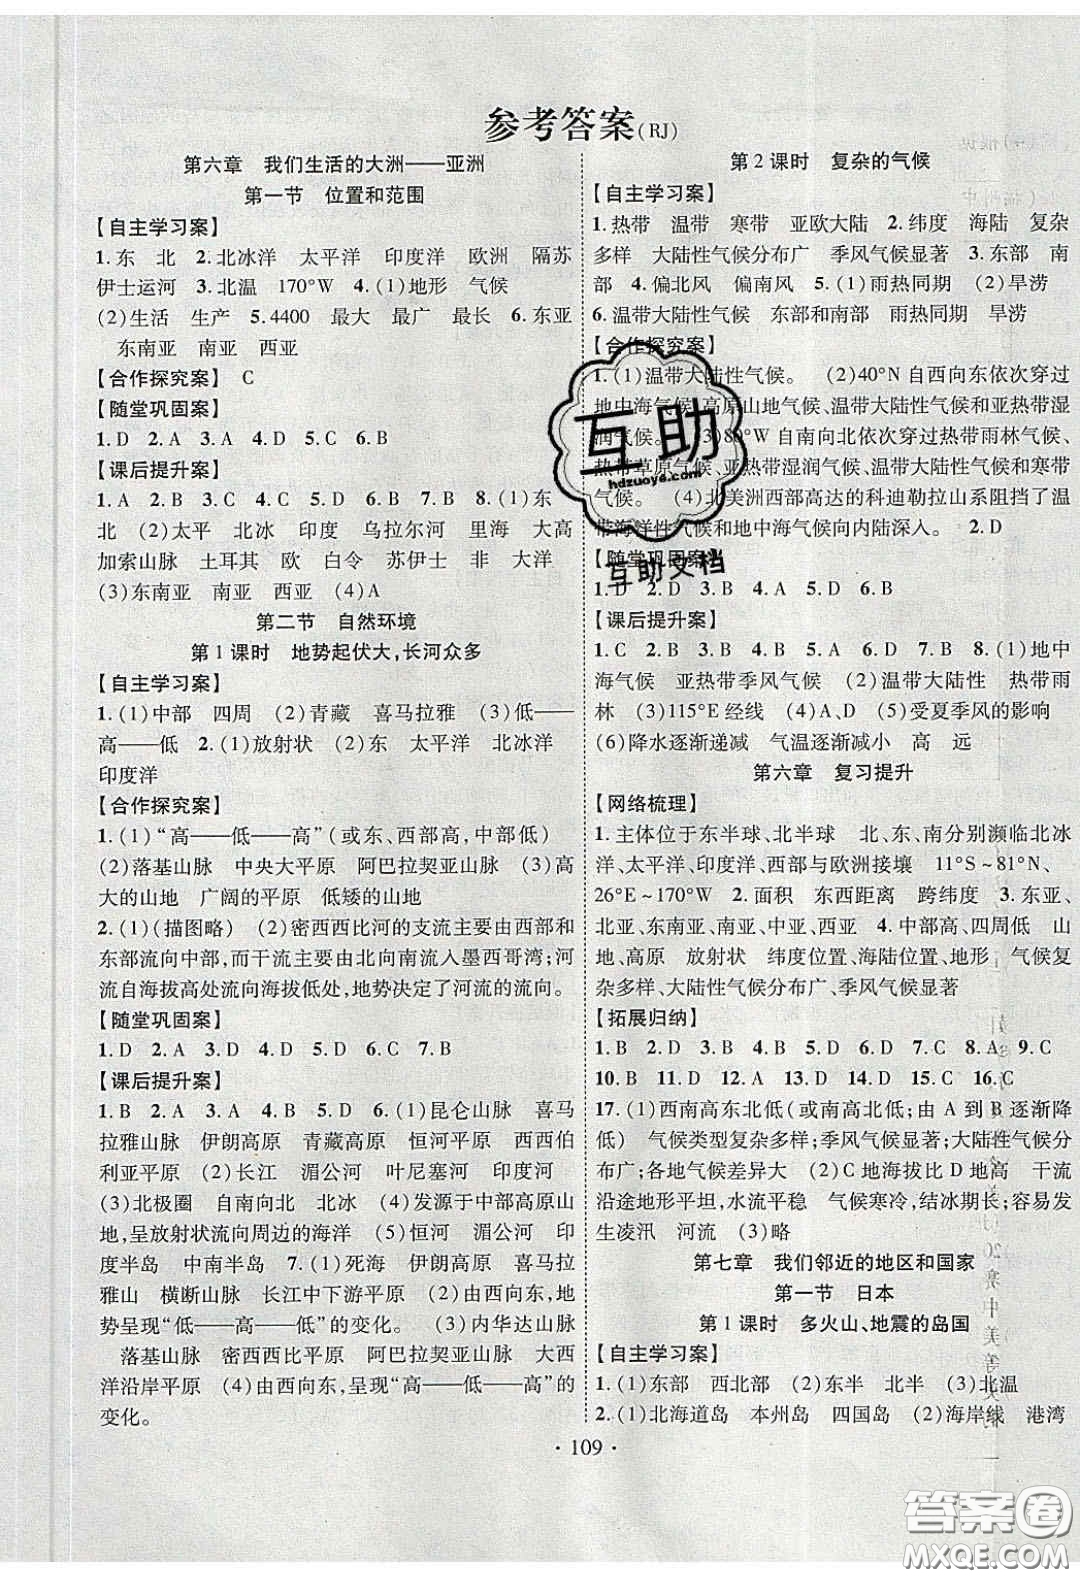 参考答案(RJ)
第六章　我们生活的大洲——亚洲
第一节　位置和范围
【自主学习案】
1.东　北　2.北冰洋　太平洋　印度洋　欧洲　隔苏
伊士运河　3.北温　170°W　4.(1)地形　气候
(2)生活　生产　5.4400　最大　最广　最长　6.东亚
东南亚　南亚　西亚
【合作探究案】　C
【随堂巩固案】
1.D　2.A　3.A　4.D　5.C　6.B
【课后提升案】
1.A　2.B　3.C　4.C　5.D　6.B　7.B　8.(1)东
北　(2)太平　北冰　印度　乌拉尔河　里海　大高
加索山脉　土耳其　欧　白令　苏伊士　非　大洋
(3)东南亚　南亚　西亚　(4)A
第二节　自然环境
第1课时　地势起伏大,长河众多
【自主学习案】
1.(1)中部　四周　(2)青藏　喜马拉雅　(3)低——
高——低　2.(1)放射状　(2)东　太平洋　北冰洋
印度洋
【合作探究案】
1.(1)“高——低——高”(或东、西部高,中部低)
(2)落基山脉　中央大平原　阿巴拉契亚山脉　(3)高
大的山地　广阔的平原　低矮的山地
2.(1)(描图略)　(2)密西西比河的支流主要由西部和
东部流向中部,而干流主要由北向南流入墨西哥湾;河
流自海拔高处流向海拔低处,地势决定了河流的流向。
【随堂巩固案】
1.D　2.A　3.D　4.D　5.D　6.C　7.B
【课后提升案】
1.B　2.A　3.D　4.A　5.D　6.(1)昆仑山脉　喜马
拉雅山脉　伊朗高原　青藏高原　恒河平原　西西伯
利亚平原　(2)长江　湄公河　叶尼塞河　印度河
(3)北极圈　自南向北　北冰　(4)发源于中部高原山
地,呈放射状流向周边的海洋　(5)恒河　湄公河　印
度半岛　中南半岛　7.(1)死海　伊朗高原　喜马拉
雅山　横断山脉　长江中下游平原　(2)由西向东,地
势呈现“低——高——低”的变化。　(3)内华达山脉
落基山脉　密西西比平原　阿巴拉契亚山脉　大西
洋沿岸平原　(4)由西向东,呈现“高——低——高”的
变化。
第2课时　复杂的气候
【自主学习案】
1.热带　温带　寒带　亚欧大陆　2.纬度　海陆　复杂
多样　大陆性气候分布广　季风气候显著　3.东部　南
部　4.偏北风　偏南风　5.(1)雨热同期　(2)旱涝
6.温带大陆性气候　东部和南部　雨热同期　旱涝
【合作探究案】
1.(1)温带大陆性气候。　(2)40°N自西向东依次穿过
地中海气候、高原山地气候、温带大陆性气候和亚热带湿
润气候。　(3)80°W自南向北依次穿过热带雨林气候、
热带草原气候、亚热带湿润气候、温带大陆性气候和寒带
气候。　(4)北美洲西部高达的科迪勒拉山系阻挡了温
带海洋性气候和地中海气候向内陆深入。　2.D
【随堂巩固案】
1.D　2.D　3.B　4.B　5.D　6.B
【课后提升案】
1.C　2.B　3.B　4.A　5.A　6.D　7.B　8.C　9.(1)地中
海气候　亚热带季风气候　(2)温带大陆性　热带雨
林　(3)115°E经线　(4)A、D　(5)受夏季风的影响
(6)降水逐渐递减　气温逐渐减小　高　远
第六章　复习提升
【网络梳理】
1.主体位于东半球、北半球　北、东、南分别濒临北冰
洋、太平洋、印度洋、西部与欧洲接壤　11°S~81°N、
26°E~170°W　2.面积　东西距离　跨纬度　3.东亚、
北亚、东南亚、南亚、中亚、西亚　4.中部高、四周低　山
地、高原　放射状　纬度位置、海陆位置、地形　气候
复杂多样、大陆性气候分布广、季风气候显著
【拓展归纳】
1.B　2.B　3.C　4.D　5.A　6.D　7.C　8.A　9.C
10.B　11.C　12.D　13.B　14.D　15.C　16.C
17.(1)西南高东北低(或南高北低;由A到B逐渐降
低)　气候类型复杂多样;季风气候显著;大陆性气候分
布广;各地气候差异大　(2)C地海拔比D地高　干流
沿途地形平坦,水流平稳　气候寒冷,结冰期长;容易发
生凌汛　河流　(3)略
第七章　我们邻近的地区和国家
第一节　日本
第1课时　多火山、地震的岛国
【自主学习案】
1.(1)东部　西北部　(2)东半　北半　(3)北温
2.(1)北海道岛　本州岛　四国岛　(2)海岸线　港湾
· 109 ·
互助
hdzuoye.com
互助文档
答案圈
MXQE.COM